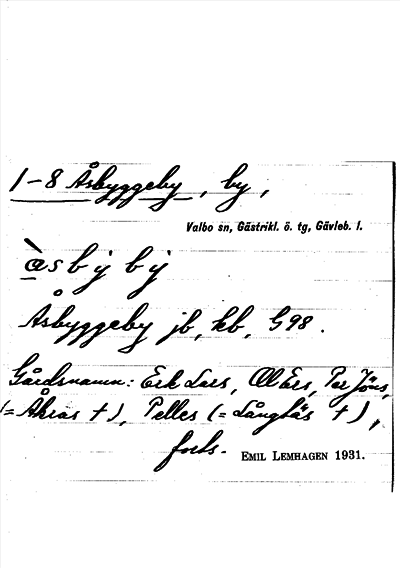 1-8 Åsbyggeby, by,
Valbo sn, Gästrikl. ö. tg, Gävleb. l.
àsbẏbẏ
Åsbyggeby jb, kb, G98.
Gårdsnamn: Erk Lars, Ol Ers, Per Jöns,
(= Åkras †), Pelles (= Långläs †),
forts.
EMIL LEMHAGEN 1931.